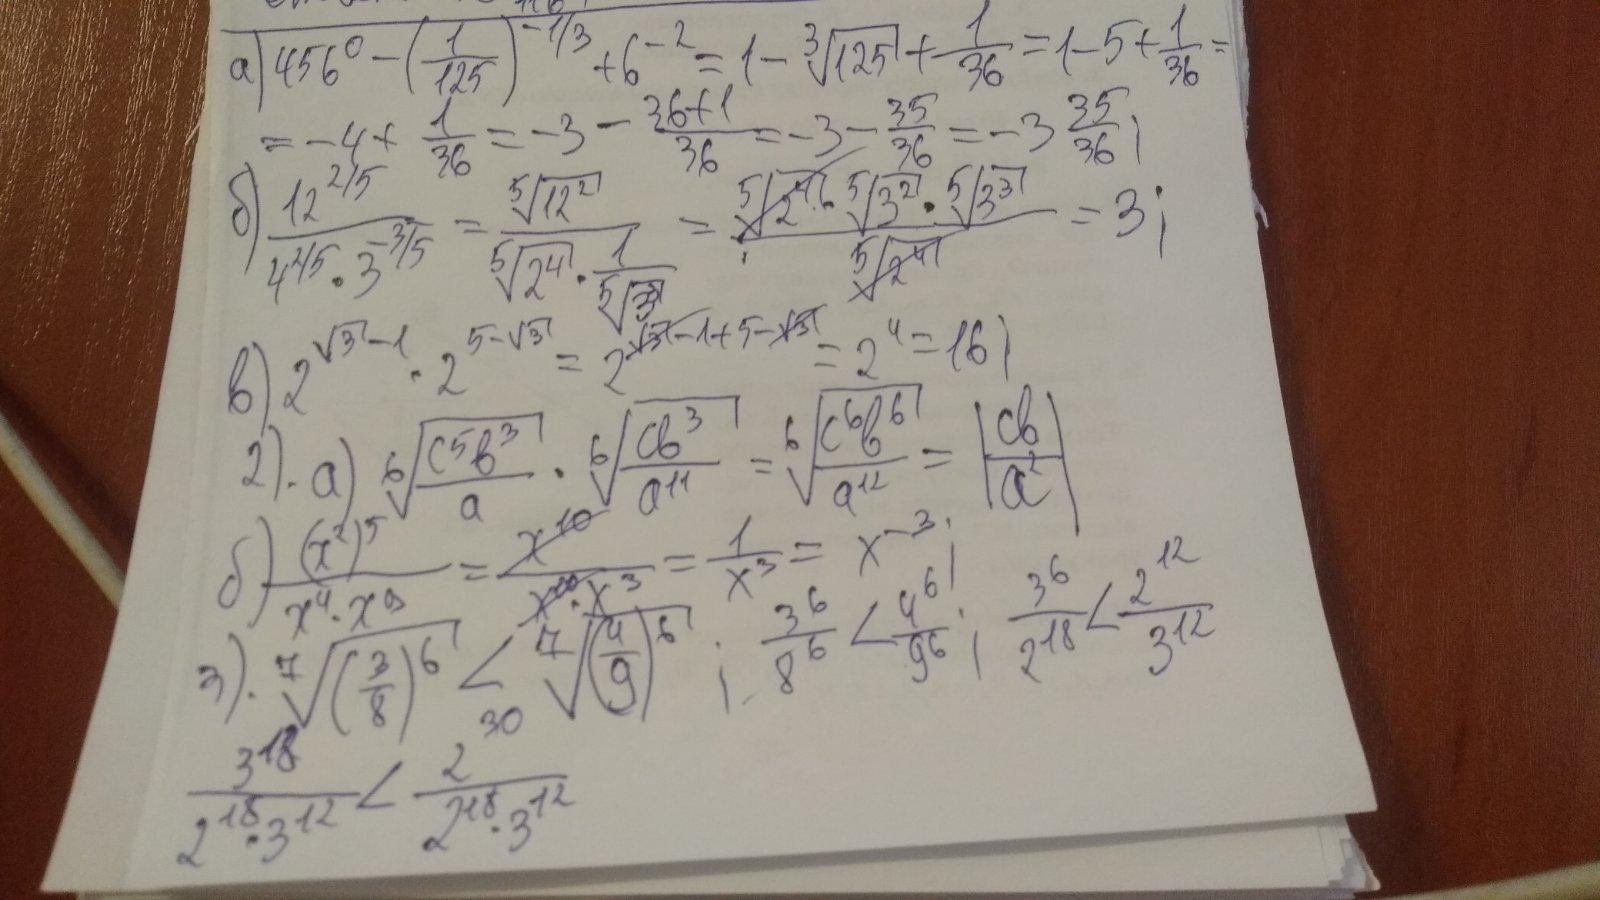 а) 456⁰ − (1/125)^(−1/3) + 6⁻² = 1 − ∛125 + 1/36 = 1 − 5 + 1/36 =
= −4 + 1/36 = −3 − (36+1)/36 = −3 − 35/36 = −3 35/36;
б) 12^(2/5) / (4^(2/5) · 3^(−3/5)) = ⁵√12² / (⁵√2⁴ · 1/⁵√3³) = (⁵√2⁴ · ⁵√3² · ⁵√3³) / ⁵√2⁴ = 3;
в) 2^(√3−1) · 2^(5−√3) = 2^(√3−1+5−√3) = 2⁴ = 16;
2). а) ⁶√(c⁵b³/a) · ⁶√(cb³/a¹¹) = ⁶√(c⁶b⁶/a¹²) = |cb/a²|
б) (x²)⁵ / (x⁴ · x⁹) = x¹⁰ / (x¹⁰ · x³) = 1/x³ = x⁻³;
3). ⁷√(3/8)⁶ < ⁷√(4/9)⁶; 3⁶/8⁶ < 4⁶/9⁶; 3⁶/2¹⁸ < 2¹²/3¹²
3¹⁸/(2¹⁸·3¹²) < 2³⁰/(2¹⁸·3¹²)